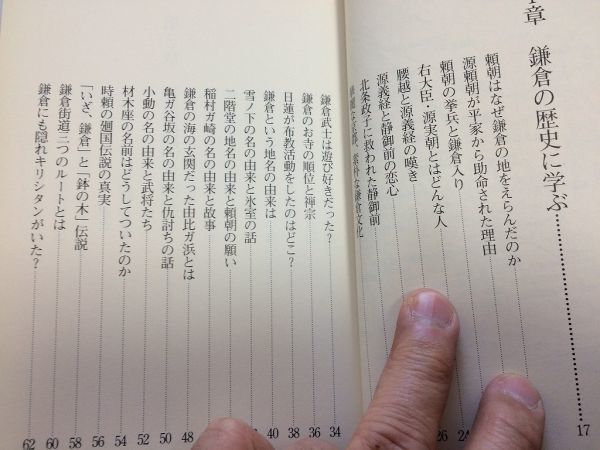 章 鎌倉の歴史に学ぶ 17
頼朝はなぜ鎌倉の地をえらんだのか
源頼朝が平家から助命された理由
頼朝の挙兵と鎌倉入り 24
右大臣・源実朝とはどんな人 26
腰越と源義経の嘆き
源義経と静御前の恋心
北条政子に救われた静御前
素朴な鎌倉文化
鎌倉武士は遊び好きだった? 34
鎌倉のお寺の順位と禅宗 36
日蓮が布教活動をしたのはどこ? 38
鎌倉という地名の由来は 40
雪ノ下の名の由来と氷室の話
二階堂の地名の由来と頼朝の願い
稲村ガ崎の名の由来と故事
鎌倉の海の玄関だった由比ガ浜とは 48
亀ガ谷坂の名の由来と仇討ちの話 50
小動の名の由来と武将たち 52
材木座の名前はどうしてついたのか 54
時頼の廻国伝説の真実 56
「いざ、鎌倉」と「鉢の木」伝説 58
鎌倉街道三つのルートとは 60
鎌倉にも隠れキリシタンがいた? 62